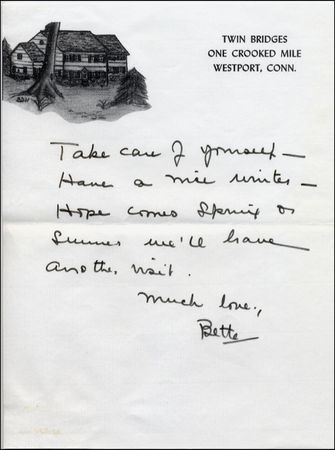 TWIN BRIDGES
ONE CROOKED MILE
WESTPORT, CONN.
Take care of yourself —
Have a nice winter —
Hope comes Spring or
Summer we'll have
another visit.
Much love,
Bette